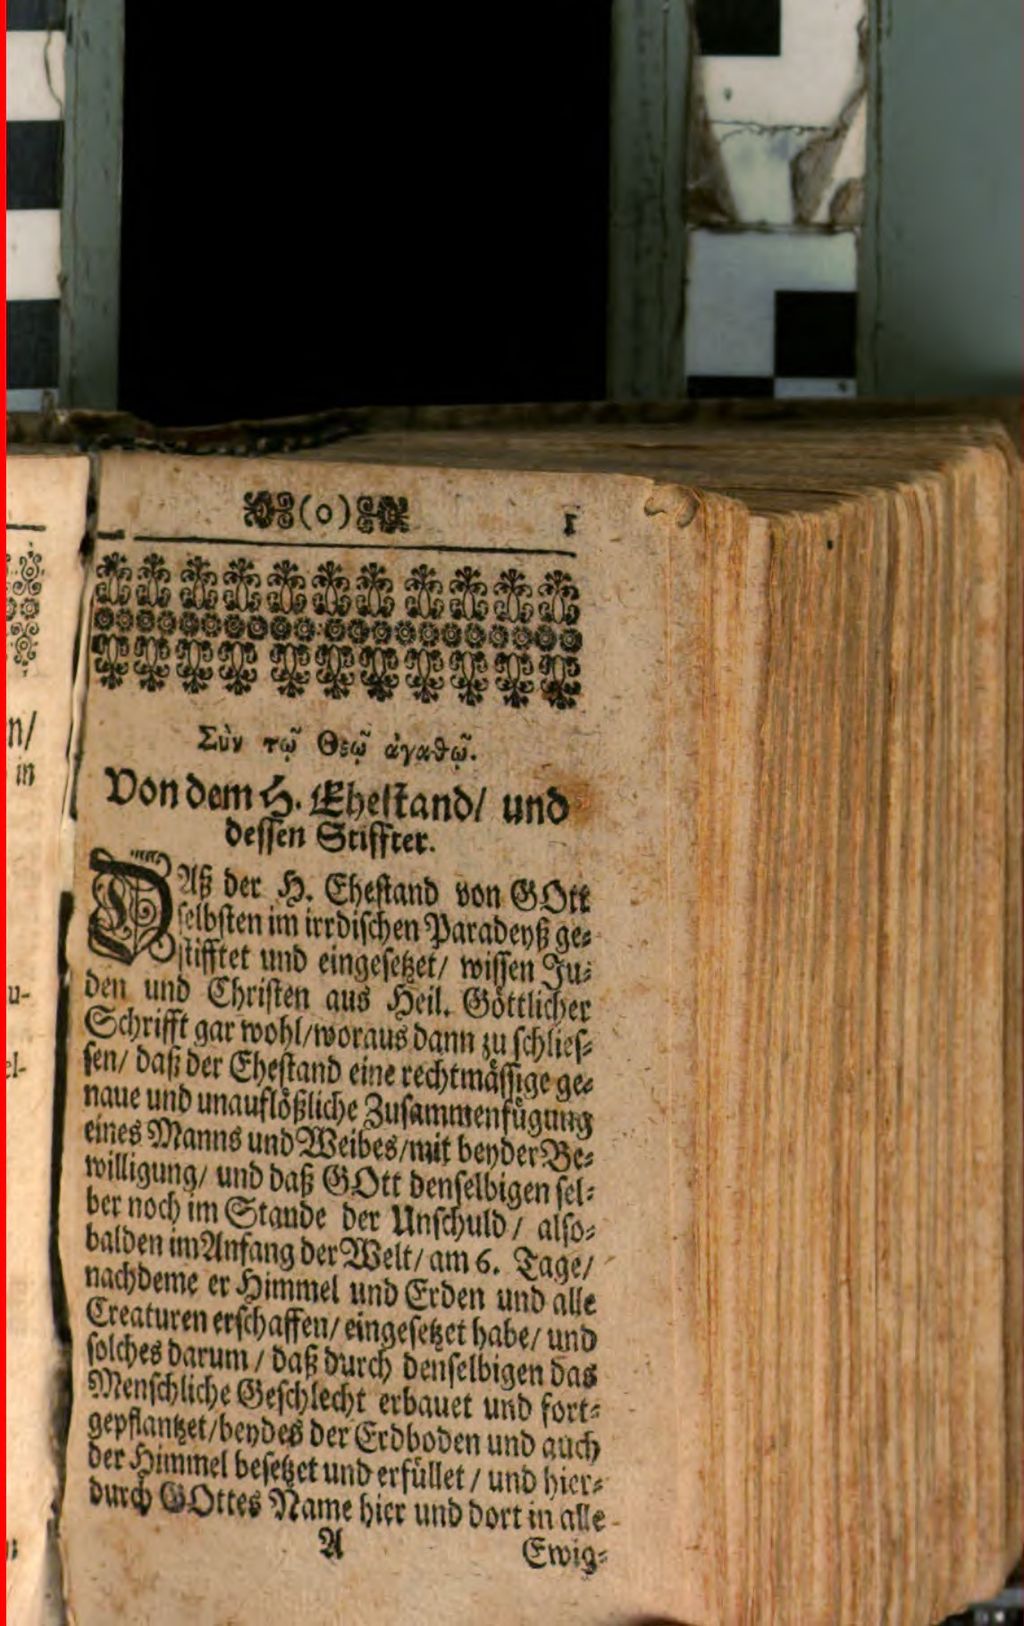 (o) 1
Σὺν τῷ Θεῷ ἀγαθῷ.
Von dem H. Ehestand/ und
dessen Stiffter.
DAß der H. Ehestand von GOtt
selbsten im irrdischen Paradeyß ge-
stifftet und eingesetzet/ wissen Ju-
den und Christen aus Heil. Göttlicher
Schrifft gar wohl/ woraus dann zu schlies-
sen/ daß der Ehestand eine rechtmässige ge-
naue und unauflößliche Zusammenfügung
eines Manns und Weibes/ mit beyder Be-
willigung/ und daß GOtt denselbigen sel-
ber noch im Stande der Unschuld/ also-
balden im Anfang der Welt/ am 6. Tage/
nachdeme er Himmel und Erden und alle
Creaturen erschaffen/ eingesetzet habe/ und
solches darum/ daß durch denselbigen das
Menschliche Geschlecht erbauet und fort-
gepflantzet/ beydes der Erdboden und auch
der Himmel besetzet und erfüllet/ und hier-
durch GOttes Name hier und dort in alle
A Ewig-
n/
in
u-
el-